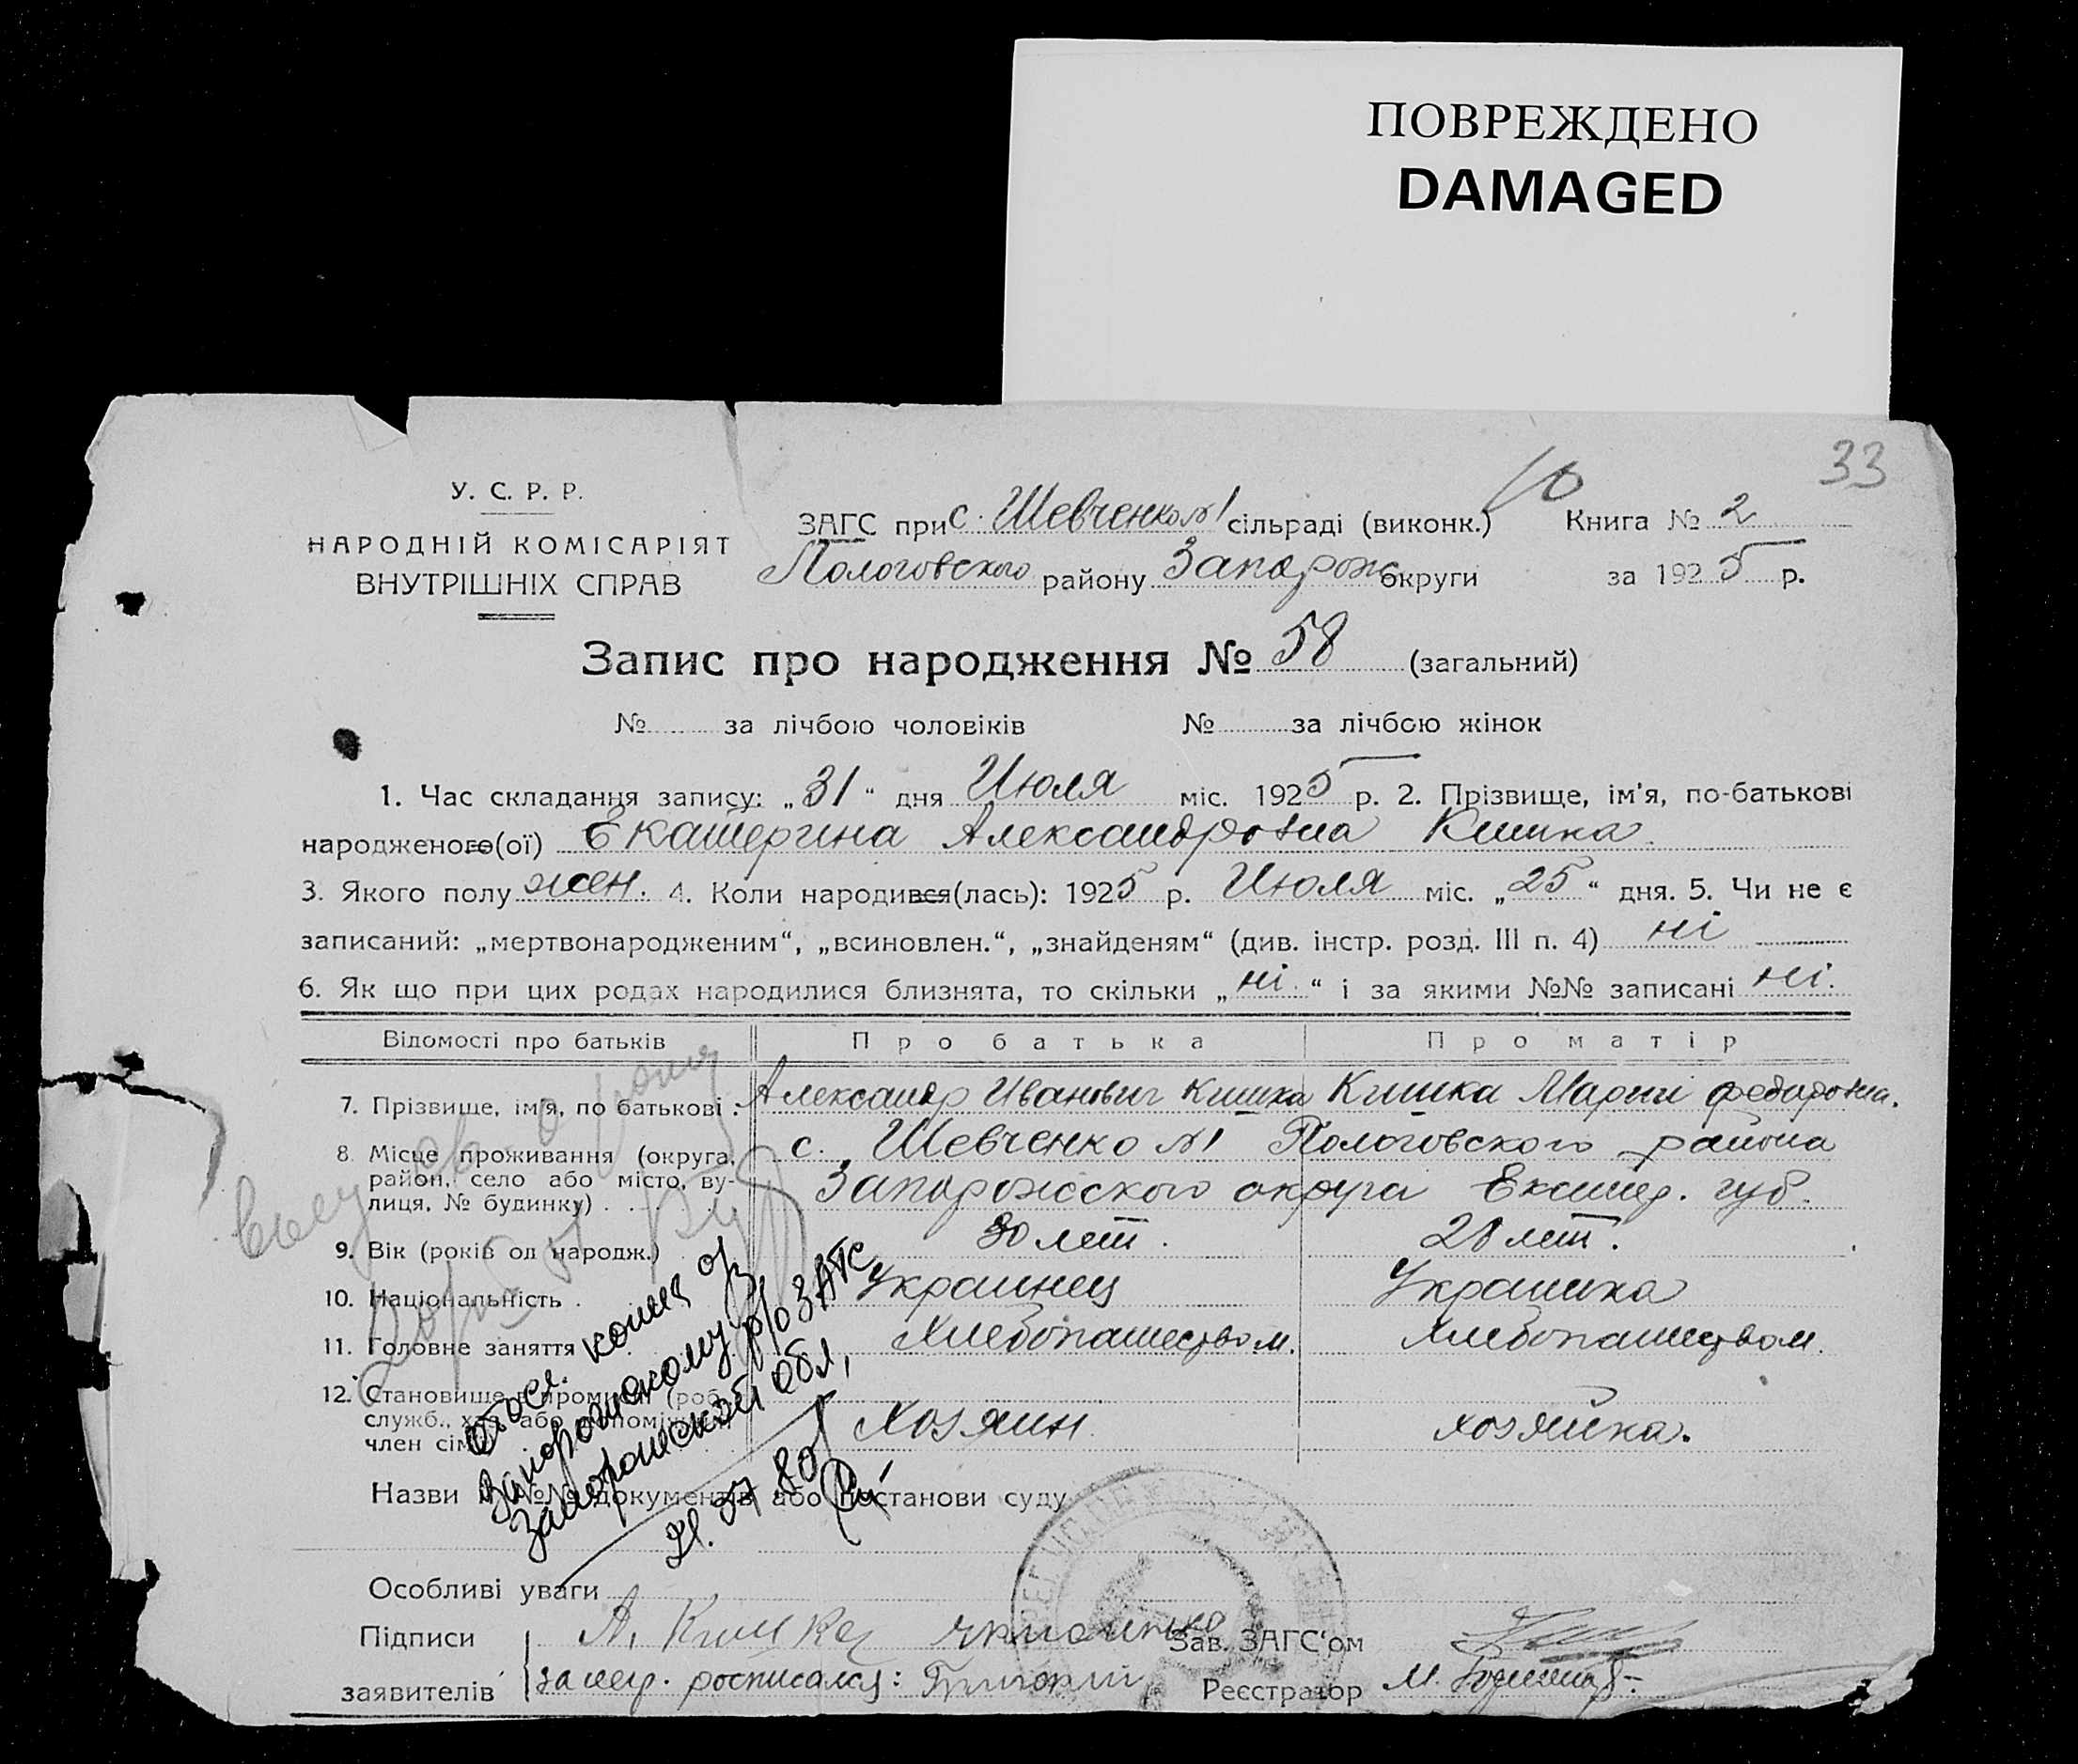 ПОВРЕЖДЕНО
DAMAGED
33
10
У. С. Р. Р.
НАРОДНІЙ КОМІСАРІЯТ
ВНУТРІШНІХ СПРАВ
ЗАГС при с. Шевченко №1 сільраді (виконк.) Книга № 2
Пологовского району Запорож округи за 1925 р.
Запис про народження № 58 (загальний)
№ за лічбою чоловіків № за лічбою жінок
1. Час складання запису: „31“ дня Июля міс. 1925 р. 2. Прізвище, ім'я, по-батькові
народженого(ої) Екатерина Александровна Кишка
3. Якого полу жен. 4. Коли народився(лась): 1925 р. Июля міс. „25“ дня. 5. Чи не є
записаний: „мертвонародженим“, „всиновлен.“, „знайденям“ (див. інстр. розд. III п. 4) ні
6. Як що при цих родах народилися близнята, то скільки „ні.“ і за якими №№ записані ні.
Відомості про батьків Про батька Про матір
7. Прізвище, ім'я, по батькові: Александр Иванович Кишка Кишка Марии Федоровна.
8. Місце проживання (округа, с. Шевченко №1 Пологовского района
район, село або місто, ву- Запорожсского округа Екатер. губ.
лиця, № будинку)
9. Вік (років од народж.) 30 лет. 28 лет.
10. Національність Украинец Украинка
11. Головне заняття Хлебопашеством. Хлебопашеством.
12. Становище в промислі (роб.,
служб., хаз. або допоміжн.
член сім Хозяин хозяйка.
Назви й №№ документів або постанови суду
копия
Запорожскому р/о ЗАГС
Запорожской обл,
80
Особливі уваги
Підписи А. Кишка Зав. ЗАГС'ом
заявителів за мер. росписался: Григорий Реєстратор М.